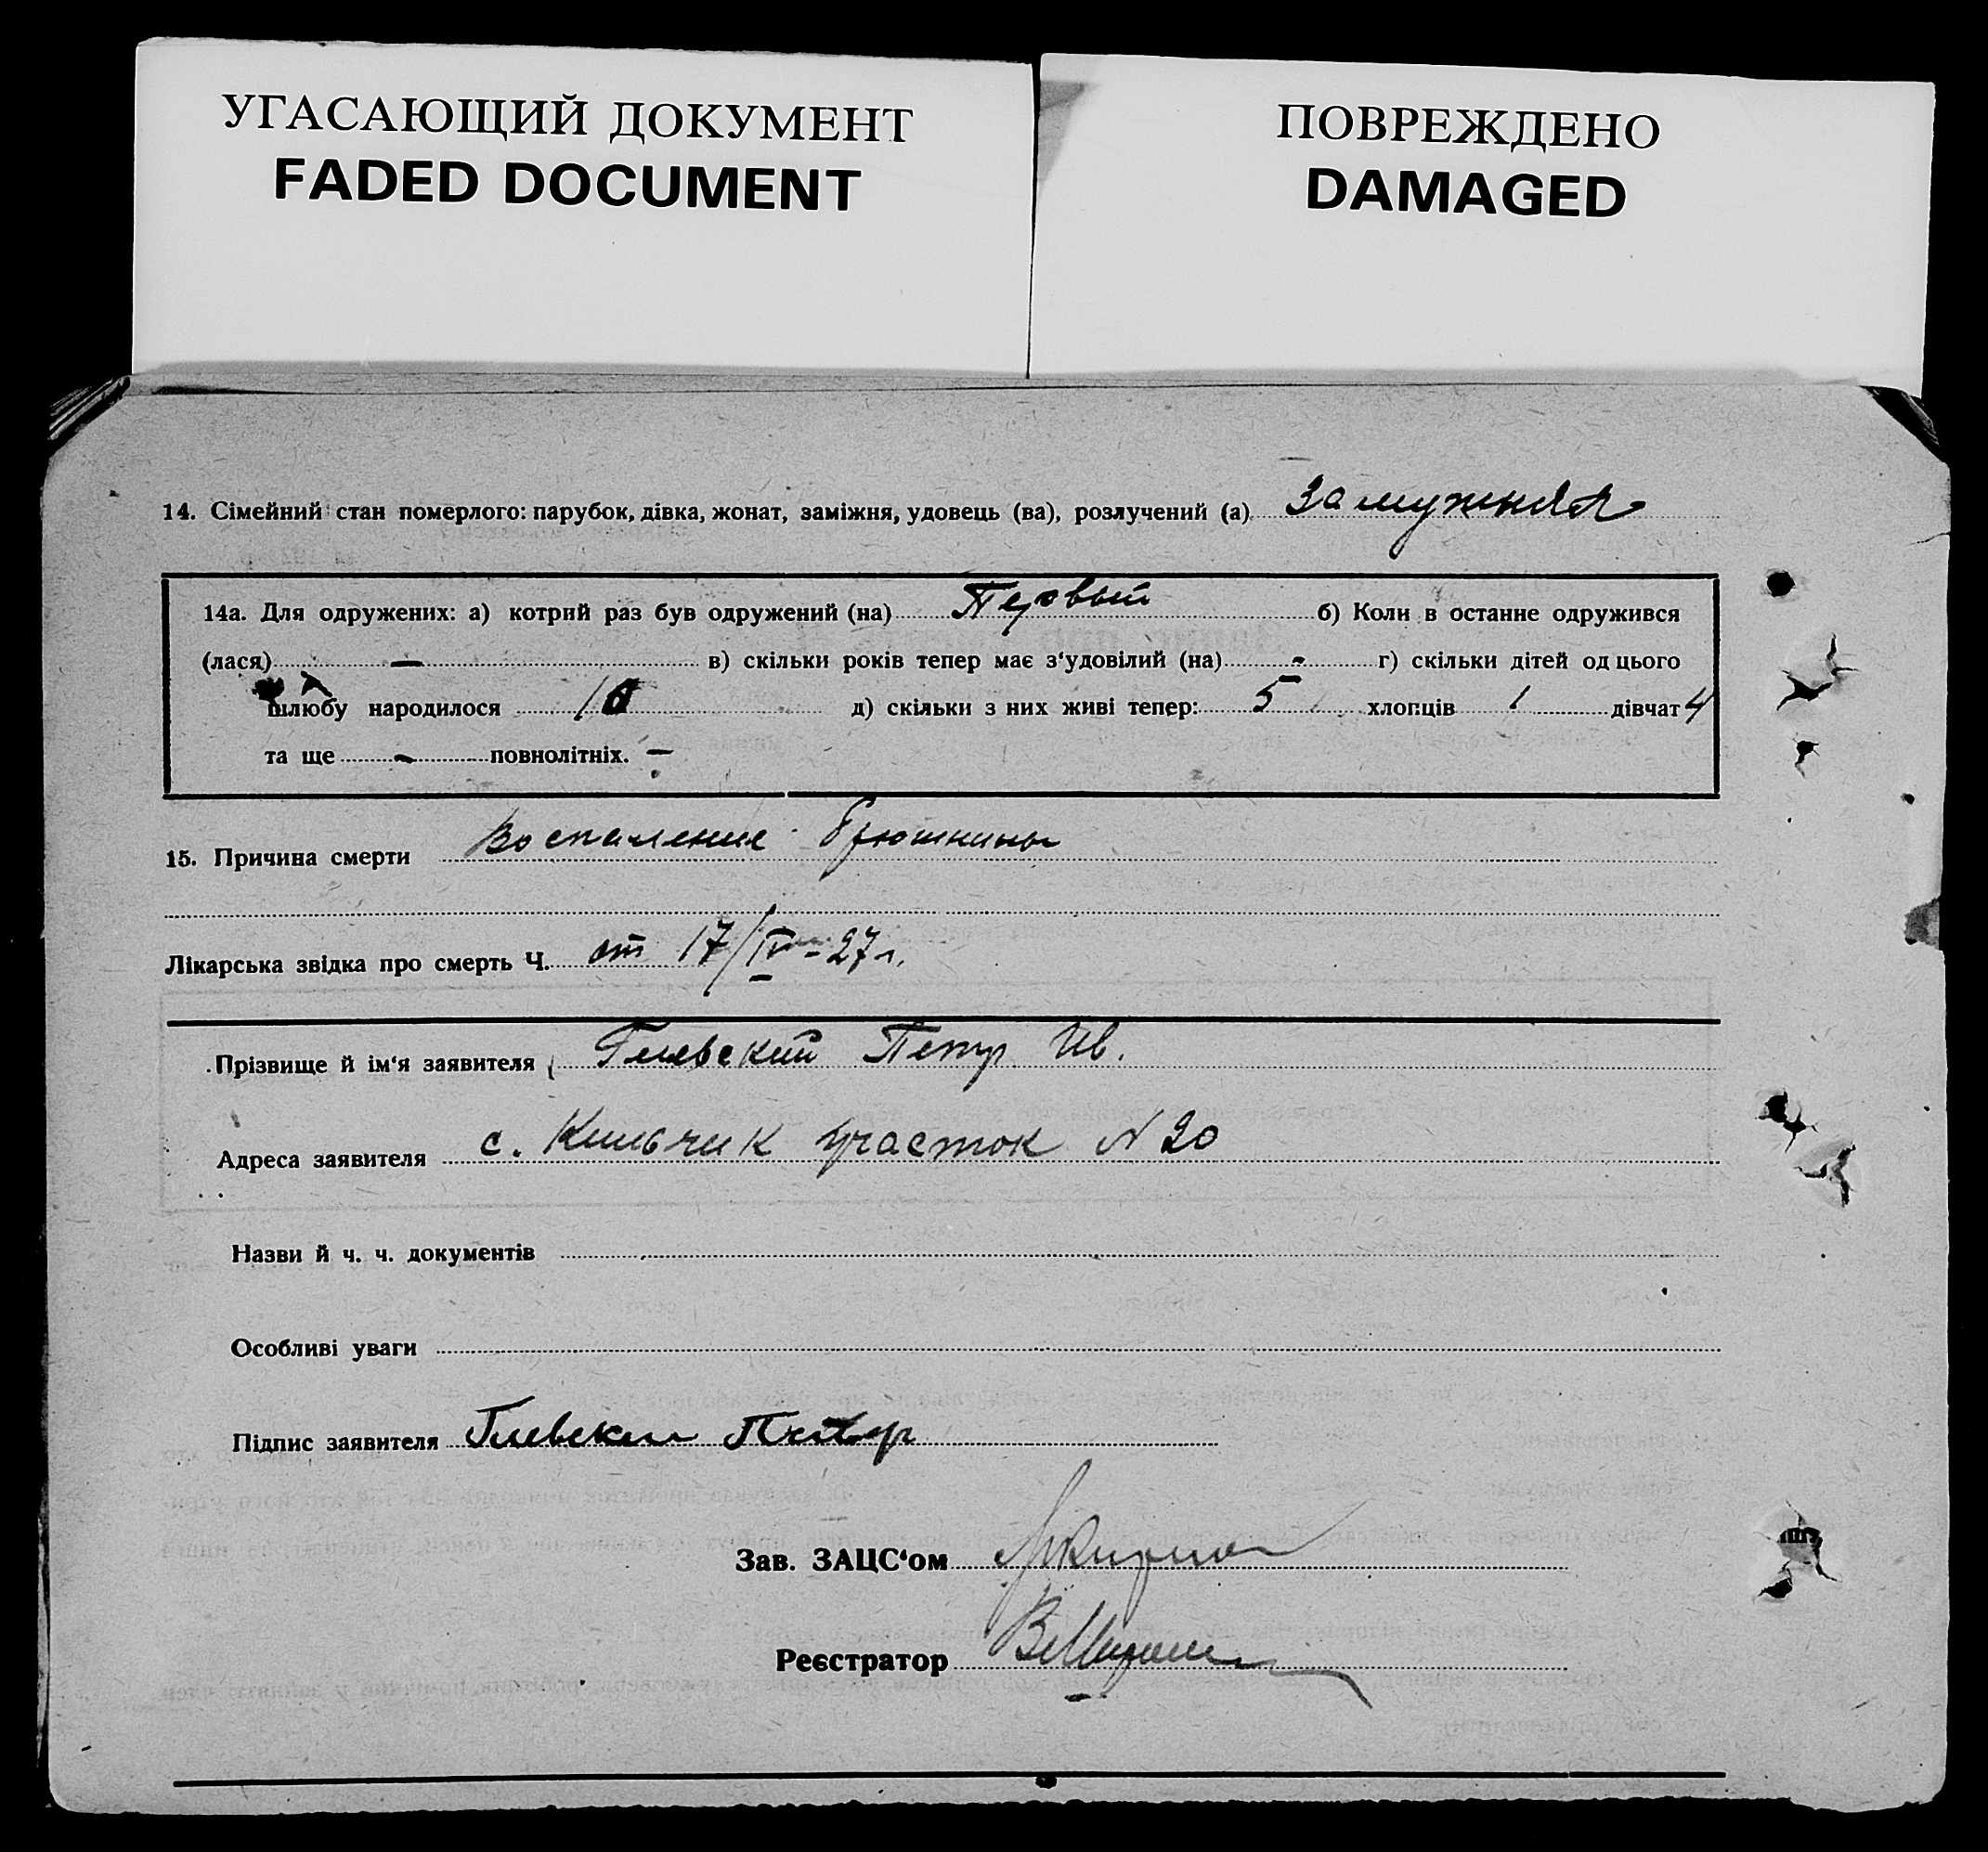 УГАСАЮЩИЙ ДОКУМЕНТ
FADED DOCUMENT
ПОВРЕЖДЕНО
DAMAGED
14. Сімейний стан померлого: парубок, дівка, жонат, заміжня, удовець (ва), розлучений (а) замужняя
14а. Для одружених: а) котрий раз був одружений (на) Первый б) Коли в останнє одружився
(лася) — в) скільки років тепер має з‘удовілий (на) - г) скільки дітей од цього
шлюбу народилося 10 д) скільки з них живі тепер: 5 хлопців 1 дівчат 4
та ще - повнолітніх. —
15. Причина смерти воспаление брюшины
Лікарська звідка про смерть Ч. от 17/IV-27 г.
Прізвище й ім‘я заявителя Глевский Петр Ив.
Адреса заявителя с. Кильчик участок N 20
Назви й ч. ч. документів
Особливі уваги
Підпис заявителя Петр
Зав. ЗАЦС‘ом
Реєстратор